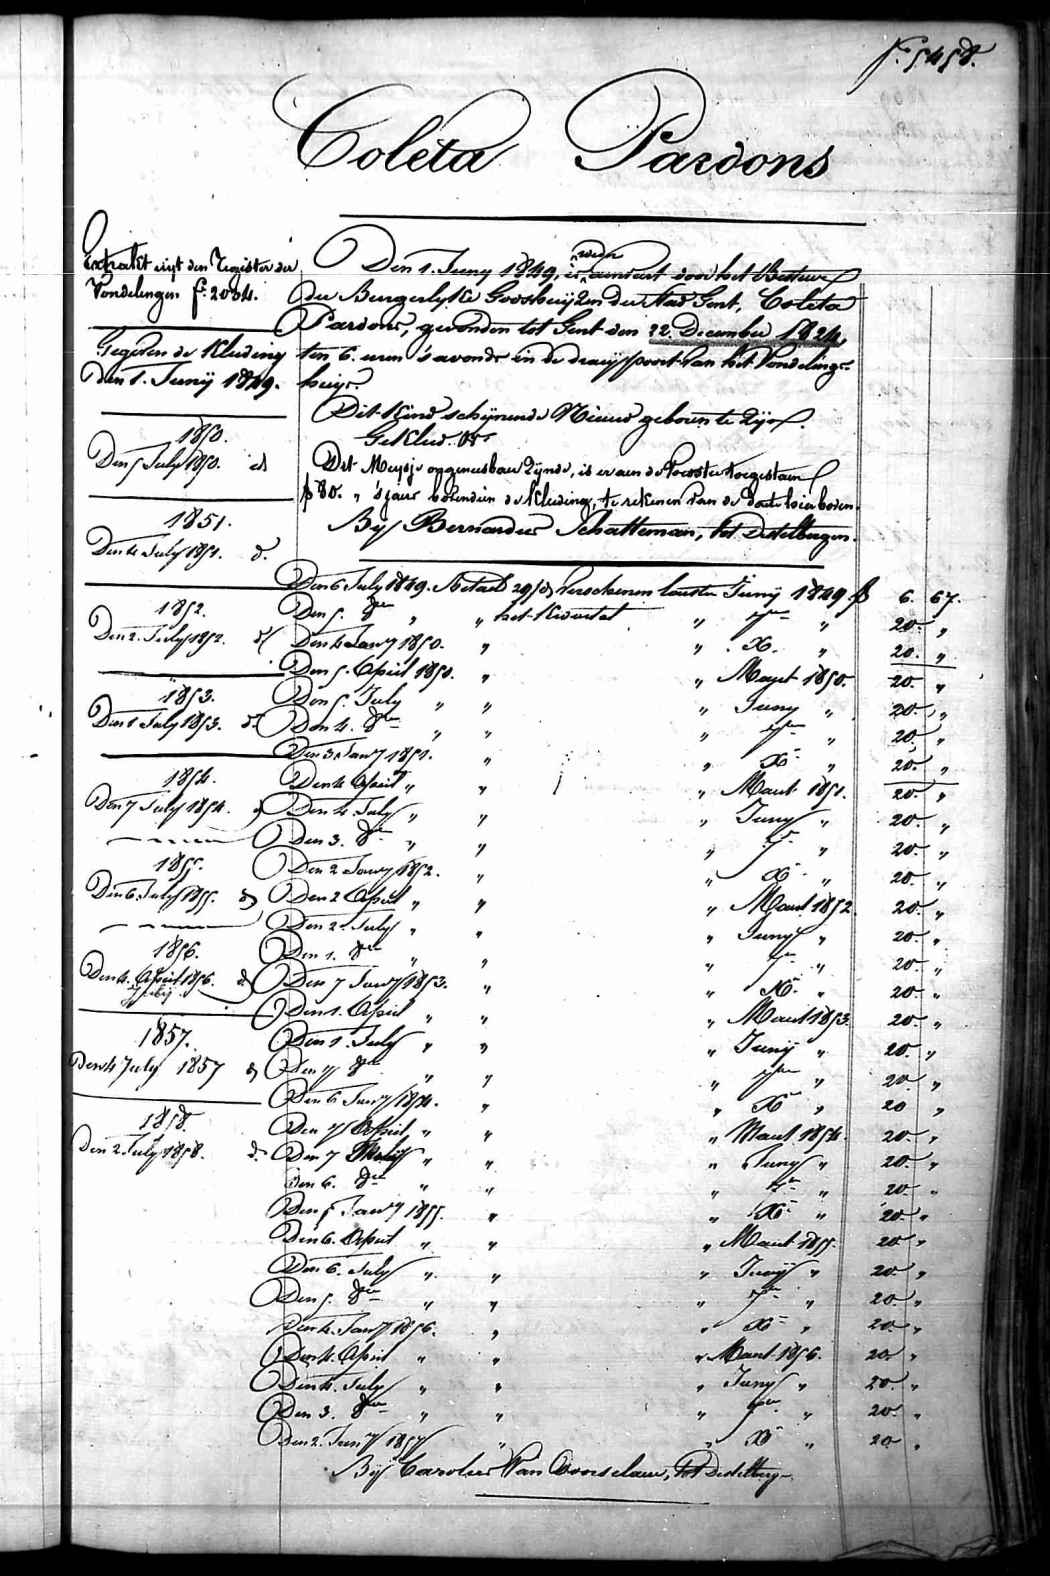 f. 5458.
Coleta Pardons
Extrakt uyt den Register der
Vondelingen f. 2034.
Gegeven de Kleeding
den 1. Junij 1849.
1850.
Den 5 July 1850. d
1851.
Den 4 July 1851. d.
1852.
Den 2. July 1852. d
1853.
Den 1 July 1853. d.
1854.
Den 7 July 1854. d
1855.
Den 6. July 1855. d
1856.
Den 4. April 1856. d
July
1857.
Den 4 July 1857 d
1858.
Den 2 July 1858. d.
Den 1. Juny 1849, is weder aenveert door het Bestuer
der Burgerlyke Godshuijzen der Stad Gent, Coleta
Pardons, gevonden tot Gent den 22. December 1824,
ten 6. uren 's avonds in de draeijpoort van het Vondelings-
huijs.
Dit Kind schijnende Nieuw geboren te Zijn.
Gekleed.
Dit Meysje opgeneembaer Zijnde, is er aen de Voedster toegestaen
80. " 's jaers bovendien de Kleeding, te rekenen van de date hierboven.
Bij Bernardus Schatteman, tot Destelbergen.
Den 6 July 1849. Betaeld 29/d verschenen laetsten Juny 1849 6. 67.
Den 5. 8re " " het Kwartal " 7re " 20. "
Den 4 Janry 1850. " " X. " 20. "
Den 5. April 1850. " " Maert 1850. 20. "
Den 5. July " " " Juny " 20. "
Den 4. 8re " " " 7re " 20. "
Den 3. Janry 1851. " " X " 20. "
Den 4 April " " " Maert 1851. 20. "
Den 4. July " " " Juny " 20. "
Den 3. 8re " " " 7re " 20. "
Den 2 Janry 1852. " " X " 20. "
Den 2 April " " " Maert 1852 20. "
Den 2. July " " " Juny " 20. "
Den 1. 8re " " " 7re " 20. "
Den 7 Janry 1853. " " X " 20. "
Den 1. April " " " Maert 1853. 20. "
Den 1. July " " " Junij " 20. "
Den 7 8re " " " 7re " 20. "
Den 6 Janry 1854. " " X " 20 "
Den 7 April " " " Maert 1854. 20. "
Den 7 July " " " Juny " 20. "
Den 6. 8re " " " 7re " 20. "
Den 5 Janry 1855. " " X " 20. "
Den 6. April " " " Maert 1855. 20. "
Den 6. July " " " Junij " 20. "
Den 5. 8re " " " 7re " 20. "
Den 4. Janry 1856. " " X " 20. "
Den 4. April " " " Maert 1856. 20. "
Den 4. July " " " Juny " 20. "
Den 3. 8re " " " 7re " 20. "
Den 2. Janry 1857 " " X " 20 "
Bij Carolus Van Doorselaer, tot Destelberg-